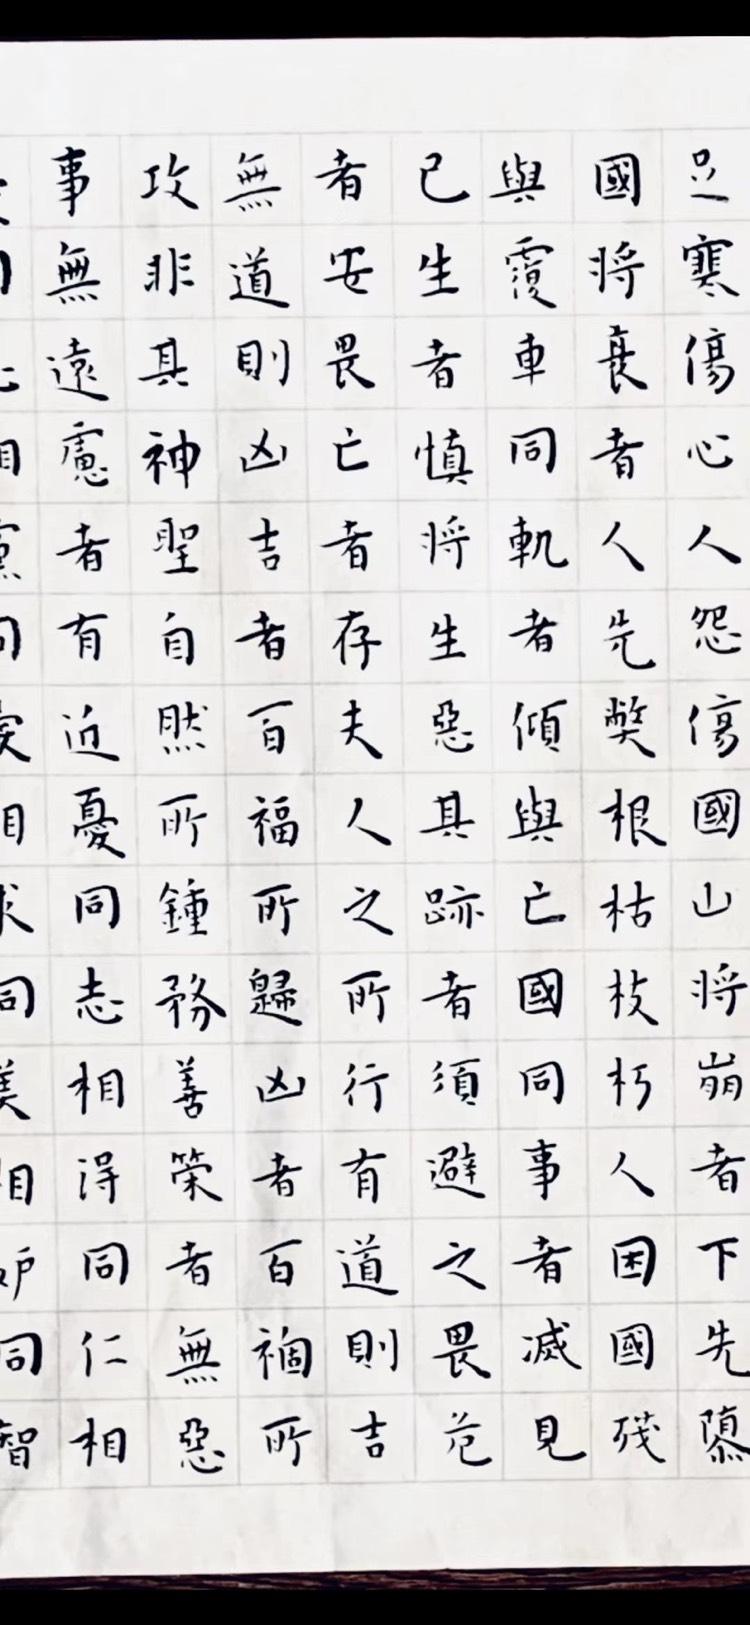 足寒傷心人怨傷國山将崩者下先隳
國将衰者人先弊根枯枝朽人困國残
與覆車同軌者傾與亡國同事者滅見
已生者慎将生惡其跡者須避之畏危
者安畏亡者存夫人之所行有道則吉
無道則凶吉者百福所歸凶者百禍所
攻非其神聖自然所鍾務善策者無惡
事無遠慮者有近憂同志相得同仁相
相黨同愛相求同美相妒同智